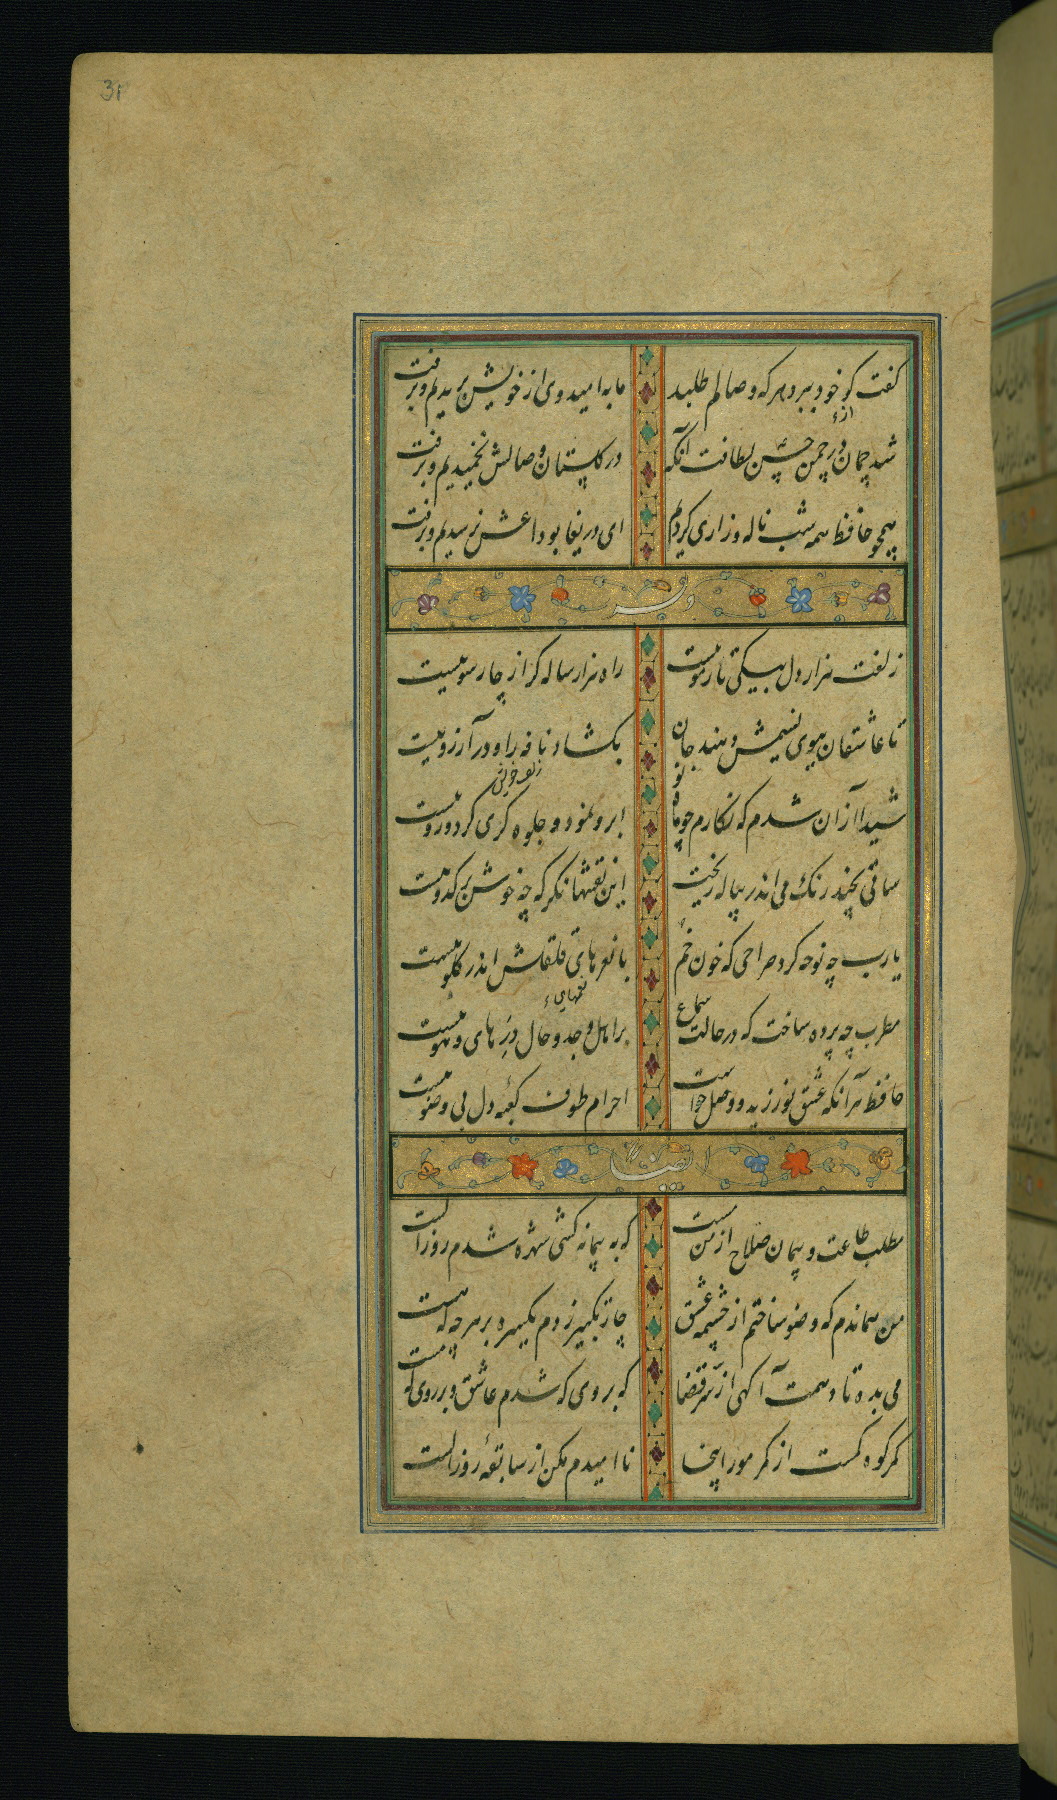 31
گفت کو خود ببرد هر که وصالم طلبد
ما به امید وی از خویش بریدیم و برفت
شد چمان در چمن حسن لطافت آنکه
از ء
در گلستان وصالش نخمیدیم و برفت
همچو حافظ همه شب ناله و زاری کردیم
ای دریغا بوداعش نرسیدیم و برفت
زلفت هزار دل بیکی تار مو ببست
راه هزار ساله گر از چار سو ببست
تا عاشقان ببوی نسیمش دهند جان
بگشاد نافه را و در آرزو ببست
شیدا از آن شدم که نگارم چو ماه نو
ابرو نمود و جلوه گری کرد و رو ببست
زلف خویش
ساقی بچند رنگ می اندر پیاله ریخت
این نقشها نگر که چه خوش در کدو ببست
یا رب چه نوحه کرد صراحی که خون خم
با نعرهای قلقلش اندر گلو ببست
نغمهای ء
مطرب چه پرده ساخت که در حالت سماع
بر اهل وجد و حال در های و هو ببست
حافظ هر آنکه عشق نورزید و وصل خواست
احرام طوف کعبه دل بی وضو ببست
ایضا
مطلب طاعت و پیمان صلاح از من مست
که به پیمانه کشی شهره شدم روز الست
من هماندم که وضو ساختم از چشمه عشق
چار تکبیر زدم یکسره بر هر چه که هست
می بده تا دهمت آگهی از سر قضا
که بروی که شدم عاشق و بر روی که مست
کمر کوه کمست از کمر مور اینجا
نا امیدم مکن از سابقه روز الست